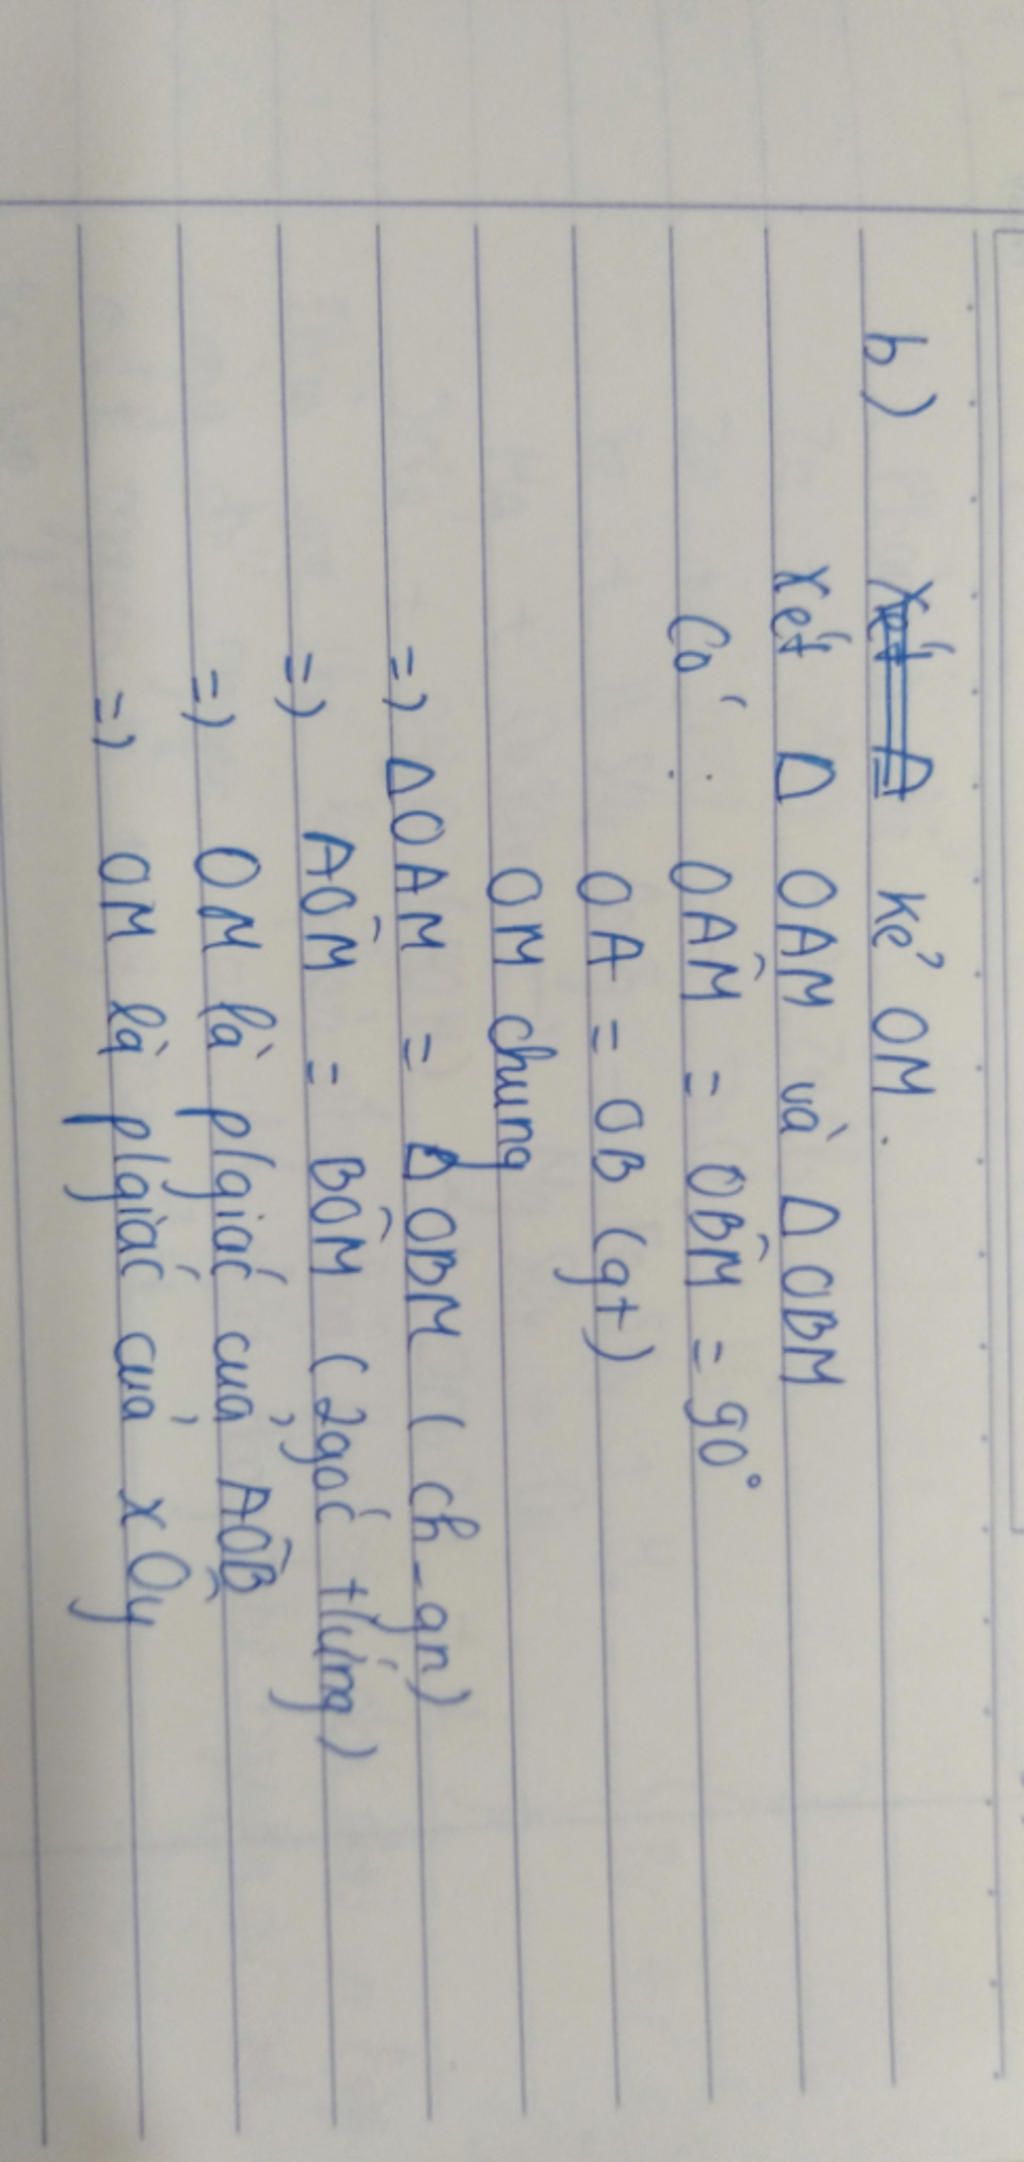 b) Xét Δ kẻ OM.
Xét Δ OAM và Δ OBM
Có: OAM̂ = OBM̂ = 90°
OA = OB (gt)
OM chung
=) Δ OAM = Δ OBM (ch_gn)
=) AOM̂ = BOM̂ (2góc t/ứng)
=) OM là p/giác của AOB̂
=) OM là p/giác của xOŷ